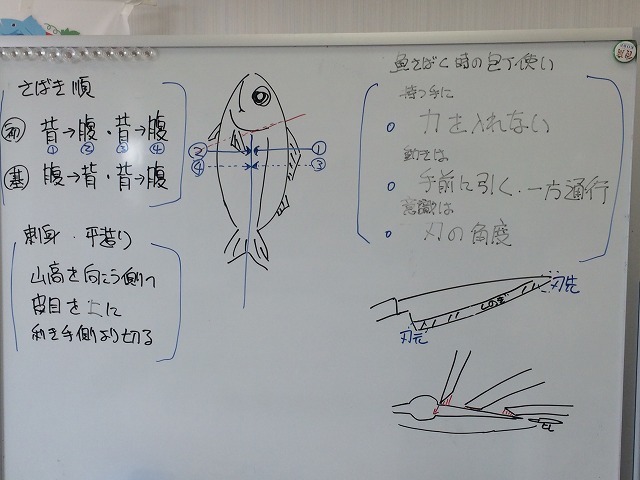 さばき順
初 背→腹・背→腹
① ② ③ ④
基 腹→背・背→腹
刺身・平造り
山高を向こう側へ
皮目を上に
利き手側より切る
② ①
④ ③
魚さばく時の包丁使い
持つ手に
力を入れない
動きは
手前に引く、一方通行
意識は
刃の角度
しのぎ
刃先
刃元